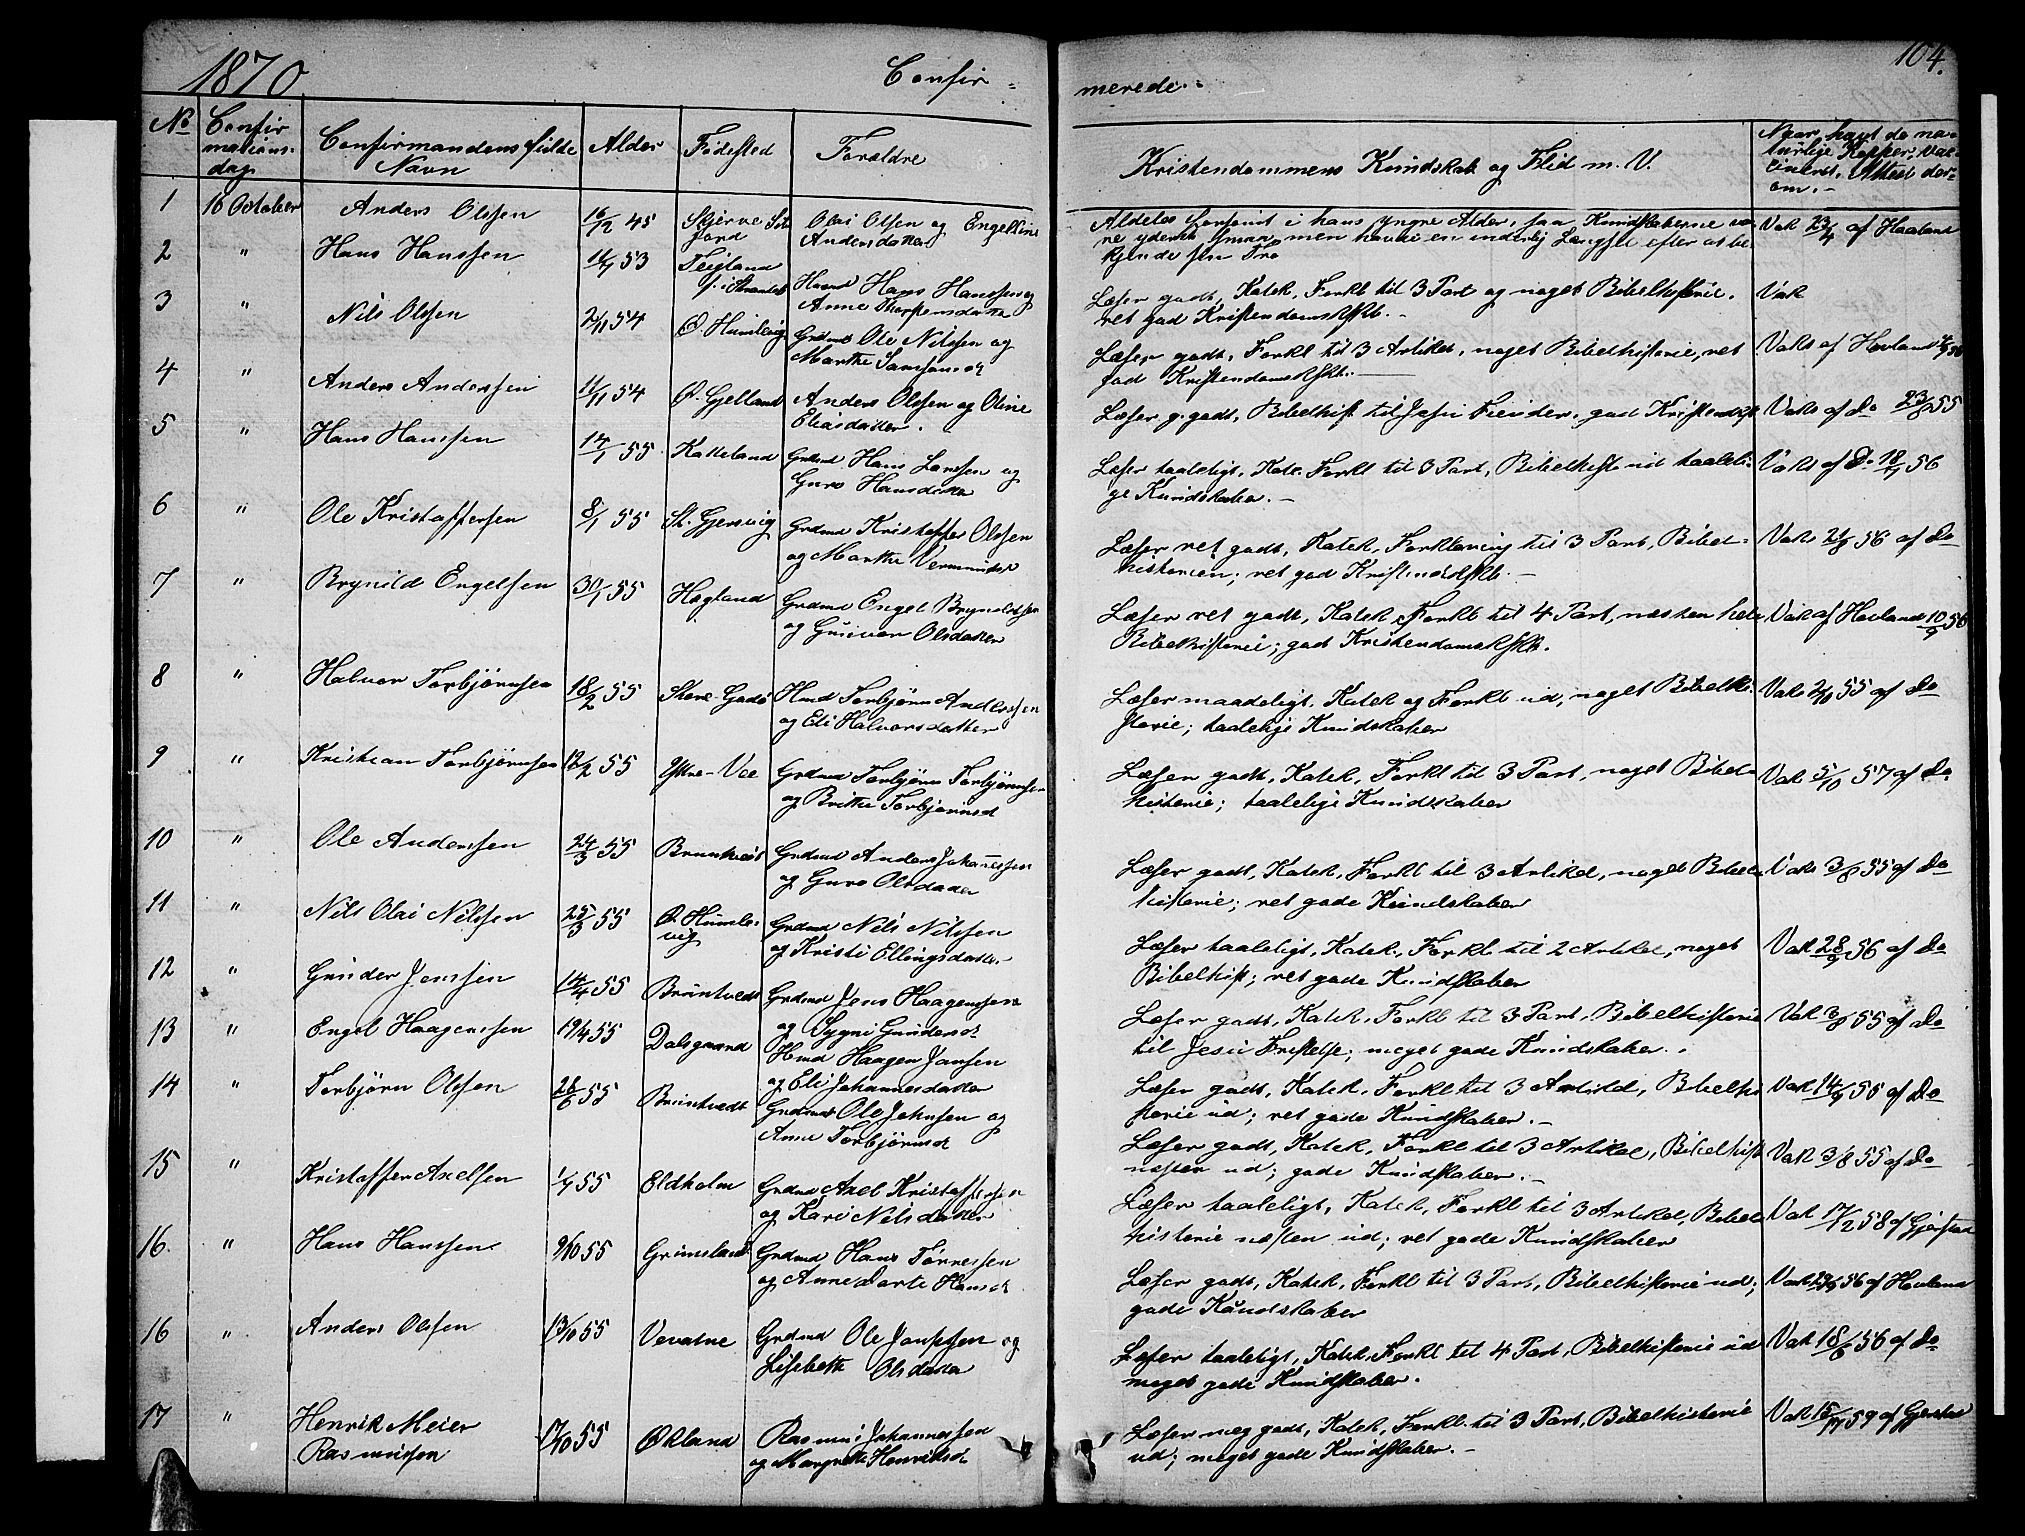 1870
Confir-
merede.
104.
No
Confirmationsdag
Confirmandens fulde Navn
Alder
Fødested
Forældre
Kristendommens Kundskab og Flid m. V.
Naar havt de naturlige Kopper, Vacineret. Attest derom.
1 16 October Anders Olssen 16/2 45 Olai Olsen og Engelline Andersdatter
Aldeles forsømt i hans yngre Alder, saa Kundskaberne vare yderst smaa men havde en inderlig Længsel efter at bekjende sin Tro
Vak 23/4 af Haaland
2 " Hans Hanssen 53 Teigland Hmd Hans Hanssen og Anne Thorstensdatter
Læser godt, Katek, Forkl til 3 Part og noget Bibelhistorie. ret god Kristendomskskb.-
Vak
3 " Nils Olssen 2/11 54 Ø. Humlevig Grdmd Ole Nilssen og Marthe Samsonsdr
Læser godt, Forkl til 3 Artikel, noget Bibelhistorie, ret god Kristendomskskb.
Vaks af Hovland
4 " Anders Anderssen 11/11 54 Ø. Gjelland Anders Olssen og Oline Eliasdatter.
Læser g. godt, Bibelhist til Jesu Fiender, god Kristendsk
Vaks af Do 23/8 55
5 " Hans Hanssen 14/1 55 Katteland Grdmd Hans Larssen og Guro Hansdatter
Læser taaleligt, Kate. Forkl til 3 Part, Bibelhist ud taalelige Kundskaber.-
Vaks af Do 18/7 56
6 " Ole Kristoffersen 8/1 55 St. Gjersvig Grdmd Kristoffer Olssen og Marthe Vermundsd
Læser ret godt, Katek, Forklaring til 3 Part, Bibelhistorien; ret god Kristendskb.-
Vaks 21/8 56 af Do
7 " Brynild Engelsen 30/1 55 Høgland Grdmd Engel Brynildssen og Gunvor Olsdatter
Læser ret godt, Katek, Forkl til 4 Part, næsten hele Bibelhistorie; god Kristendomskskb.
Vak af Hovland 10/9 56
8 " Halvor Torbjørnsen 18/2 55 Store-Godø Hmd Torbjørn Anderssen og Eli Halvorsdatter
Læser maadeligt, Katek og Forkl ud, noget Bibelhistorie; taalelige Kundskaber
Vaks 55 af Do
9 " Kristian Torbjørnsen 55 Yttre-Vee Grdmd Torbjørn Torbjørnsen og Britte Torbjørnsd
Læser godt, Katek, Forkl til 3 Part, noget Bibelhistorie; taalelige Kundskaber
Vak 5/10 57 af Do
10 " Ole Anderssen 24/3 55 Bruntvedt Grdmd Anders Johannessen og Guro Olsdatter
Læser godt, Katek, Forkl til 3 Artikel, noget Bibelhistorie; ret gode Kundskaber
Vaks 3/8 55 af Do
11 " Nils Olai Nilssen 25/3 55 Ø. Humlevig Grdmd Nils Nilssen og Kristi Ellingsdatter
Læser taaleligt, Katek, Forkl til 2 Artikel, noget Bibelhist; ret gode Kundskaber
Vak 28/9 56 af Do
12 " Gunder Jenssen 14/4 55 Bruntvedt Grdmd Jens Haagenssen og Sygni Gundersdr
Læser godt, Katek, Forkl til 3 Part, Bibelhistorie til Jesu Fristelse; meget gode Kundskaber.
Vak 3/8 55 af Do
13 " Engel Haagenssen 19/4 55 Dalsgaard Hmd Haagen Jansen og Eli Johannesdatter
Læser godt, Katek, Forkl til 3 Artikel, Bibelhistorie ud; ret gode Kundskaber.-
Vak 14/9 55 af Do
14 " Torbjørn Olssen 28/6 55 Bruntvedt Grdmd Ole Johnsen og Anne Torbjørnsd
Læser godt, Katek, Forkl til 3 Artikel, Bibelhist næsten ud; gode Kundskaber.-
Vak 3/8 55 af Do
15 " Kristoffer Axelsen 1/9 55 Eldholm Grdmd Axel Kristoffersen og Kari Nilsdatter
Læser taaleligt, Katek, Forkl til 3 Artikel, Bibelhistorie næsten ud; ret gode Kundskaber
Vak 17/12 58 af Gjerstad
16. " Hans Hanssen 9/10 55 Grimsland Grdmd Hans Tørressen og Anne Dorte Hansd
Læser godt, Katek, Forkl til 3 Part, Bibelhistorie ud; gode Kundskaber
Vak 56 af Hovland
16 " Anders Olssen 13/10 55 Vevatne Grdmd Ole Janssen og Lisebeth Olsdatter
Læser taaleligt, Katek, Forkl til 4 Part, Bibelhistorie ud meget gode Kundskaber.
Vak 18/6 56 af Do
17 " Henrik Meier Rasmussen 17/10 55 Økland Rasmus Johannessen og Margrethe Henriksd
Læser meg godt, Katek, Forkl til 3 Part, Bibelhistorie ud; meget gode Kundskaber.-
Vak 59 af Gjerstad